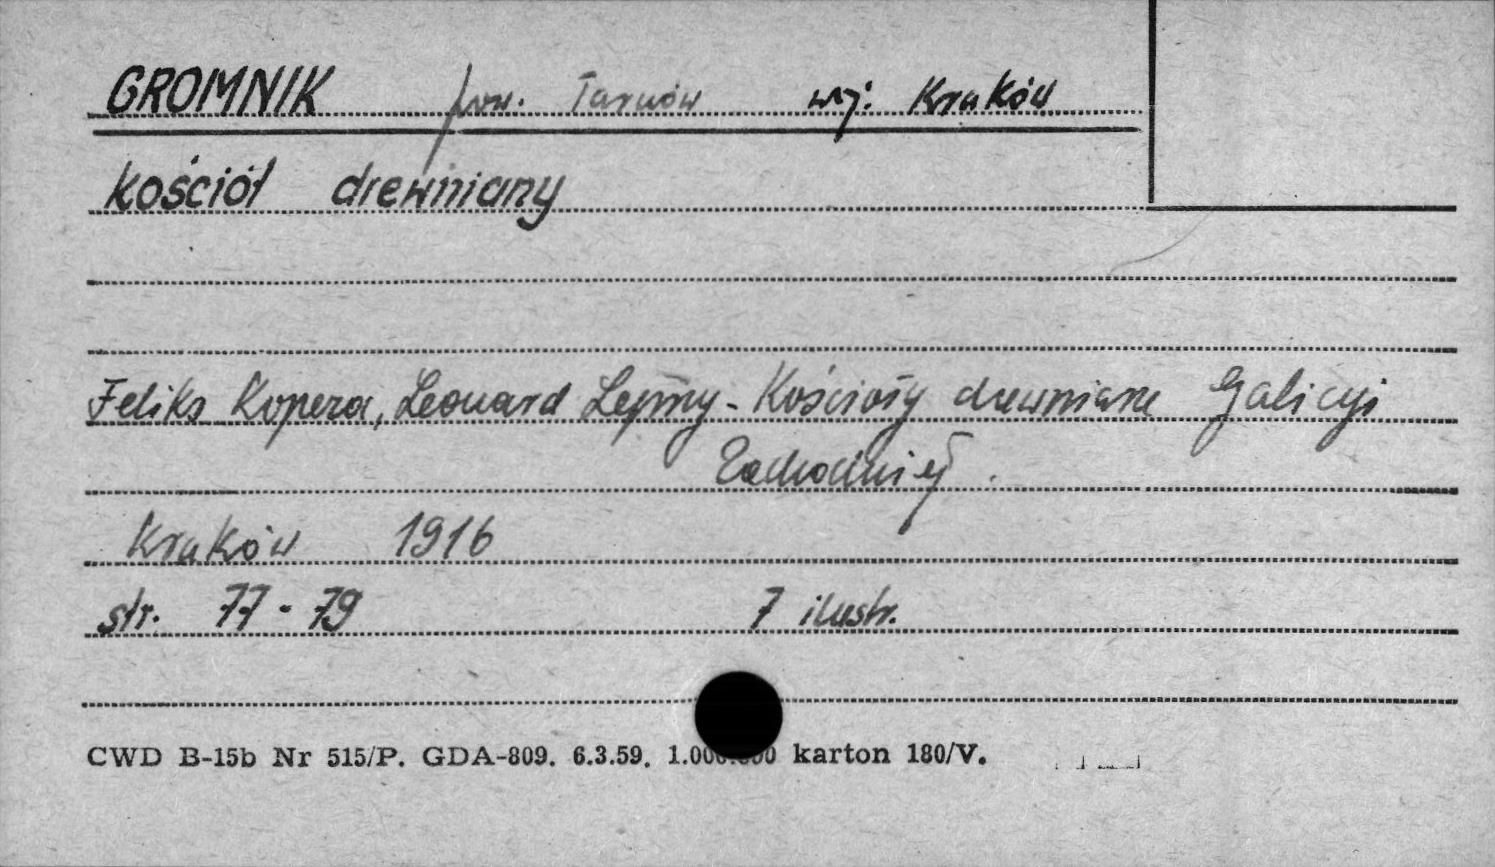 GROMNIK pow. Tarnów wj. Kraków
kościół drewniany
Feliks Kopera, Leonard Lepszy - Kościoły drewniane Galicyi
Zachodniej.
Kraków 1916
str. 77-79 7 ilustr.
CWD B-15b Nr 515/P. GDA-809. 6.3.59. 1.000.000 karton 180/V.